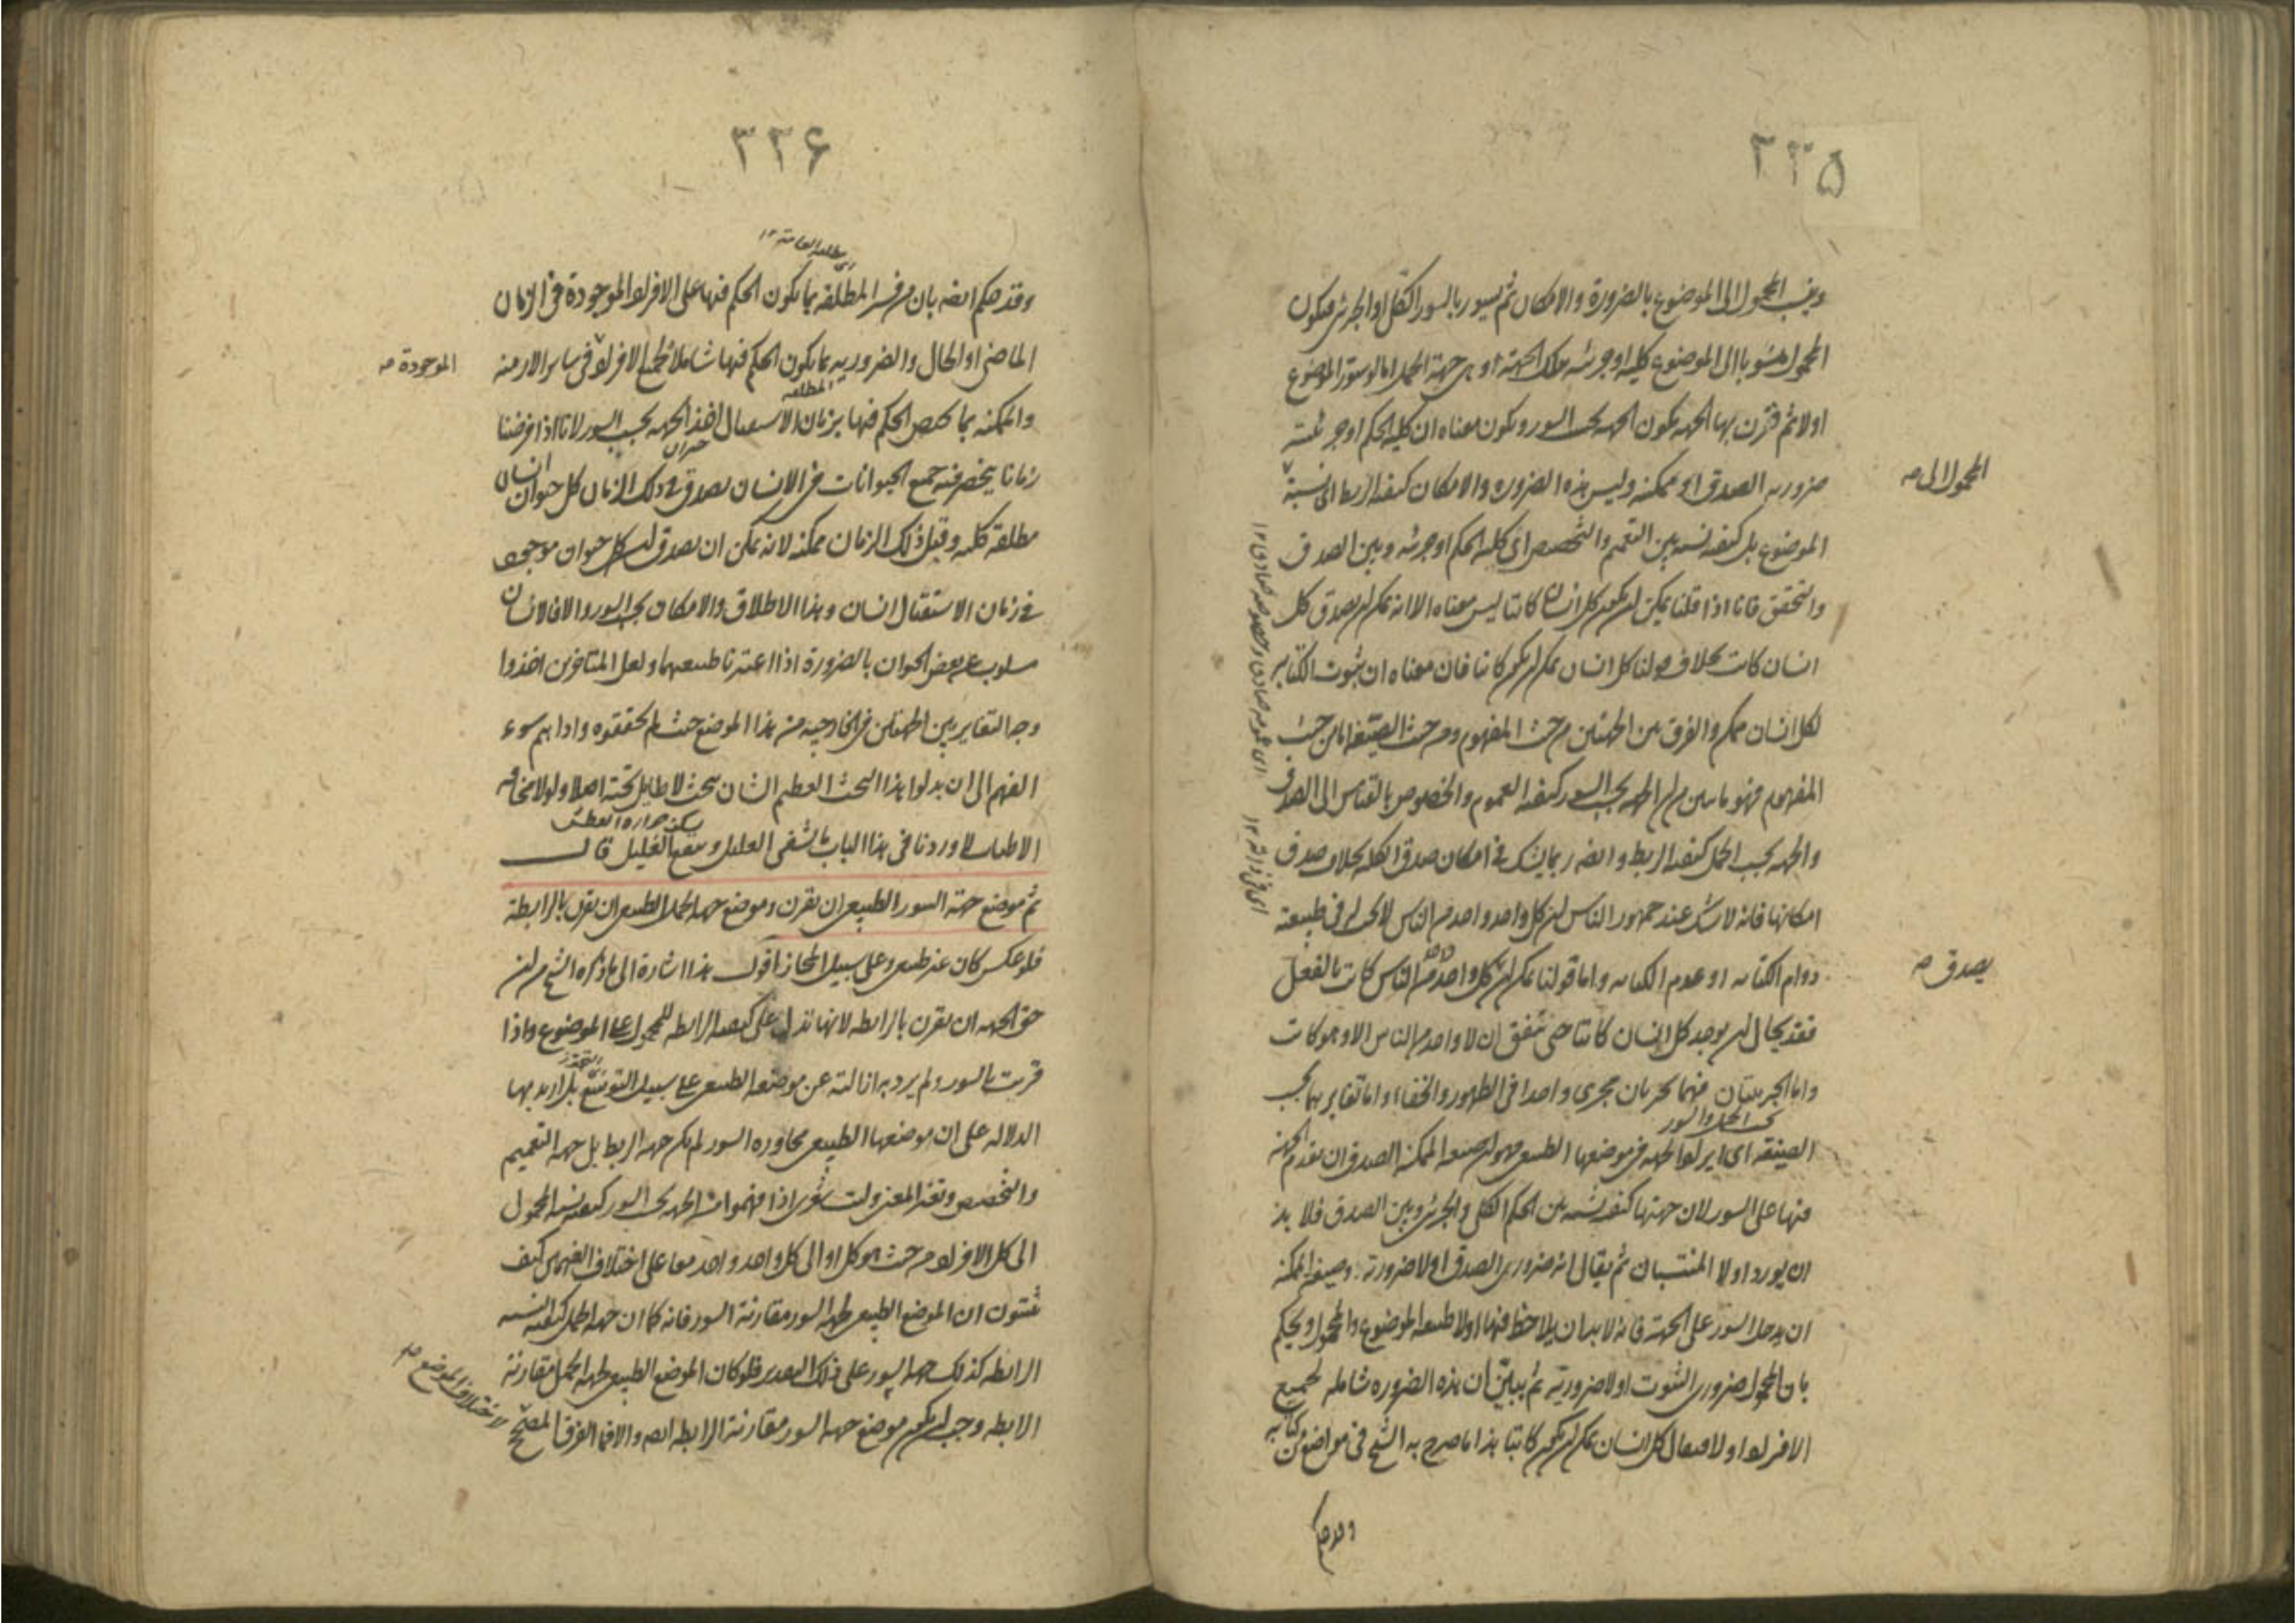 ٣٣۵
وينسب المحمول الى الموضوع بالضرورة والامكان ثم يسور بالسور الكلى او الجزئى فيكون
المحمول منسوبا الى الموضوع كلية او جزئية بتلك الجهة او هى جهة الحمل اما لو سور الموضوع
اولا ثم قرن بها الجهة يكون الجهة بحسب السور ويكون معناه ان كلية الحكم او جزئيته
ضرورية الصدق او ممكنة وليس هذه الضرورة والامكان كيفية الربط اى نسبة
المحمول الى صح
الموضوع بل كيفية نسبة بين التعميم والتخصيص اى كلية الحكم او جزئيته وبين الصدق
والتحقق فانا اذا قلنا يمكن ان يكون كل انسان كاتبا ليس معناه الا انه يمكن ان يصدق كل
انسان كاتب بخلاف قولنا كل انسان يمكن ان يكون كاتبا فان معناه ان ثبوت الكتابة
لكل انسان ممكن والفرق بين الجهتين من حيث المفهوم ومن حيث الصيغة اما من حيث
المفهوم فهو ما بين من ان الجهة بحسب السور كيفية العموم والخصوص بالقياس الى الصدق
والجهة بحسب الحمل كيفية الربط وايضه ربما يشك فى امكان صدق الكلية بخلاف صدق
امكانها فانه لا شك عند جمهور الناس ان كل واحد واحد من الناس لا يجب له فى طبيعته
دوام الكتابة او عدم الكتابة واما قولنا يمكن ان كل واحد من الناس كاتب بالفعل
يصدق صح
فقد يحال ان يوجد كل انسان كاتبا حتى يتفق ان لا واحد من الناس الا وهو كاتب
واما الجزئيتان فهما تجريان مجرى واحدا فى الظهور والخفاء واما تغايرهما بحسب
بحسب الحمل والسور
الصيغة اى ايراد الجهة فى موضعها الطبيعى فهو ان صيغة الممكنة الصدق ان تقدم الجهة
فيها على السور لان جهتها كيفية نسبة بين الحكم الكلى والجزئى وبين الصدق فلا بد
ان يورد اولا المنتسبان ثم يقال انه ضرورى الصدق او لا ضرورته وصيغة الممكنة
ان يدخل السور على الجهة فانه لا بد ان يلاحظ فيها اولا طبيعة الموضوع والمحمول ويحكم
بان المحمول ضرورى الثبوت او لا ضروريته ثم يبين ان هذه الضرورة شاملة لجميع
الافراد او لا فيقال كل انسان يمكن ان يكون كاتبا هذا ما صرح به الشيخ فى مواضع من كتابه
وقد حكم
اى عمومه صادق وخصوصه صادق ١٢
٣٣۶
المطلقة العامة ١٢
وقد حكم ايضه بان من فسر المطلقة بما يكون الحكم فيها على الافراد الموجودة فى الزمان
الماضى او الحال والضرورية بما يكون الحكم فيها شاملا لجميع الافراد فى ساير الازمنة
الموجودة صح
والممكنة بما يختص الحكم فيها بزمان الاستقبال اخذ الجهة بحسب السور لانا اذا فرضنا
المطلقة
زمانا ينحصر فيه جميع الحيوانات فى الانسان يصدق فى ذلك الزمان كل حيوان انسان
مطلقة كلية وقبل ذلك الزمان ممكنة لانه يمكن ان يصدق ان كل حيوان موجود
فى زمان الاستقبال انسان وهذا الاطلاق والامكان بحسب السور والا فالانسان
مسلوب عن بعض الحيوان بالضرورة اذا اعتبرنا طبيعتهما ولعل المتاخرين اخذوا
وجه التغاير بين الجهتين فى الخارجية من هذا الموضع حيث لم يحققوه واداهم سوء
الفهم الى ان بدلوا هذا البحث العظيم الشان ببحث لا طايل تحته اصلا ولولا مخافة
الاطناب لاوردنا فى هذا الباب ما يشفى العليل وينقع الغليل قال
يسكن حرارة العطش
ثم موضع جهة السور الطبيعى ان تقرن وموضع جهة الحمل الطبيعى ان تقرن بالرابطة
فلو عكس كان غير طبيعى وعلى سبيل المجاز اقول هذا اشارة الى ما ذكره الشيخ من ان
حق الجهة ان تقرن بالرابطة لانها تدل على كيفية الرابطة للمحمول على الموضوع واذا
قرنت بالسور ولم يرد به ازالته عن موضعه الطبيعى على سبيل التوسع بل اريد بها
الدلالة على ان موضعها الطبيعى مجاورة السور لم يكن جهة الربط بل جهة التعميم
والتخصيص وتغير المعنى وليت شعرى اذا فهموا من الجهة بحسب السور كيفية نسبة المحمول
الى كل الافراد من حيث هو كل او الى كل واحد واحد معا على اختلاف الفهمين كيف
يثبتون ان الموضع الطبيعى لجهة السور مقارنة السور فانه كما ان جهة الحمل كيفية نسبة
الرابطة كذلك جهة السور على ذلك التقدير فلو كان الموضع الطبيعى لجهة الحمل مقارنة
الرابطة وجب ان يكون موضع جهة السور مقارنة الرابطة ايضه والا فما الفرق المصحح
لاختلاف الموضع صح